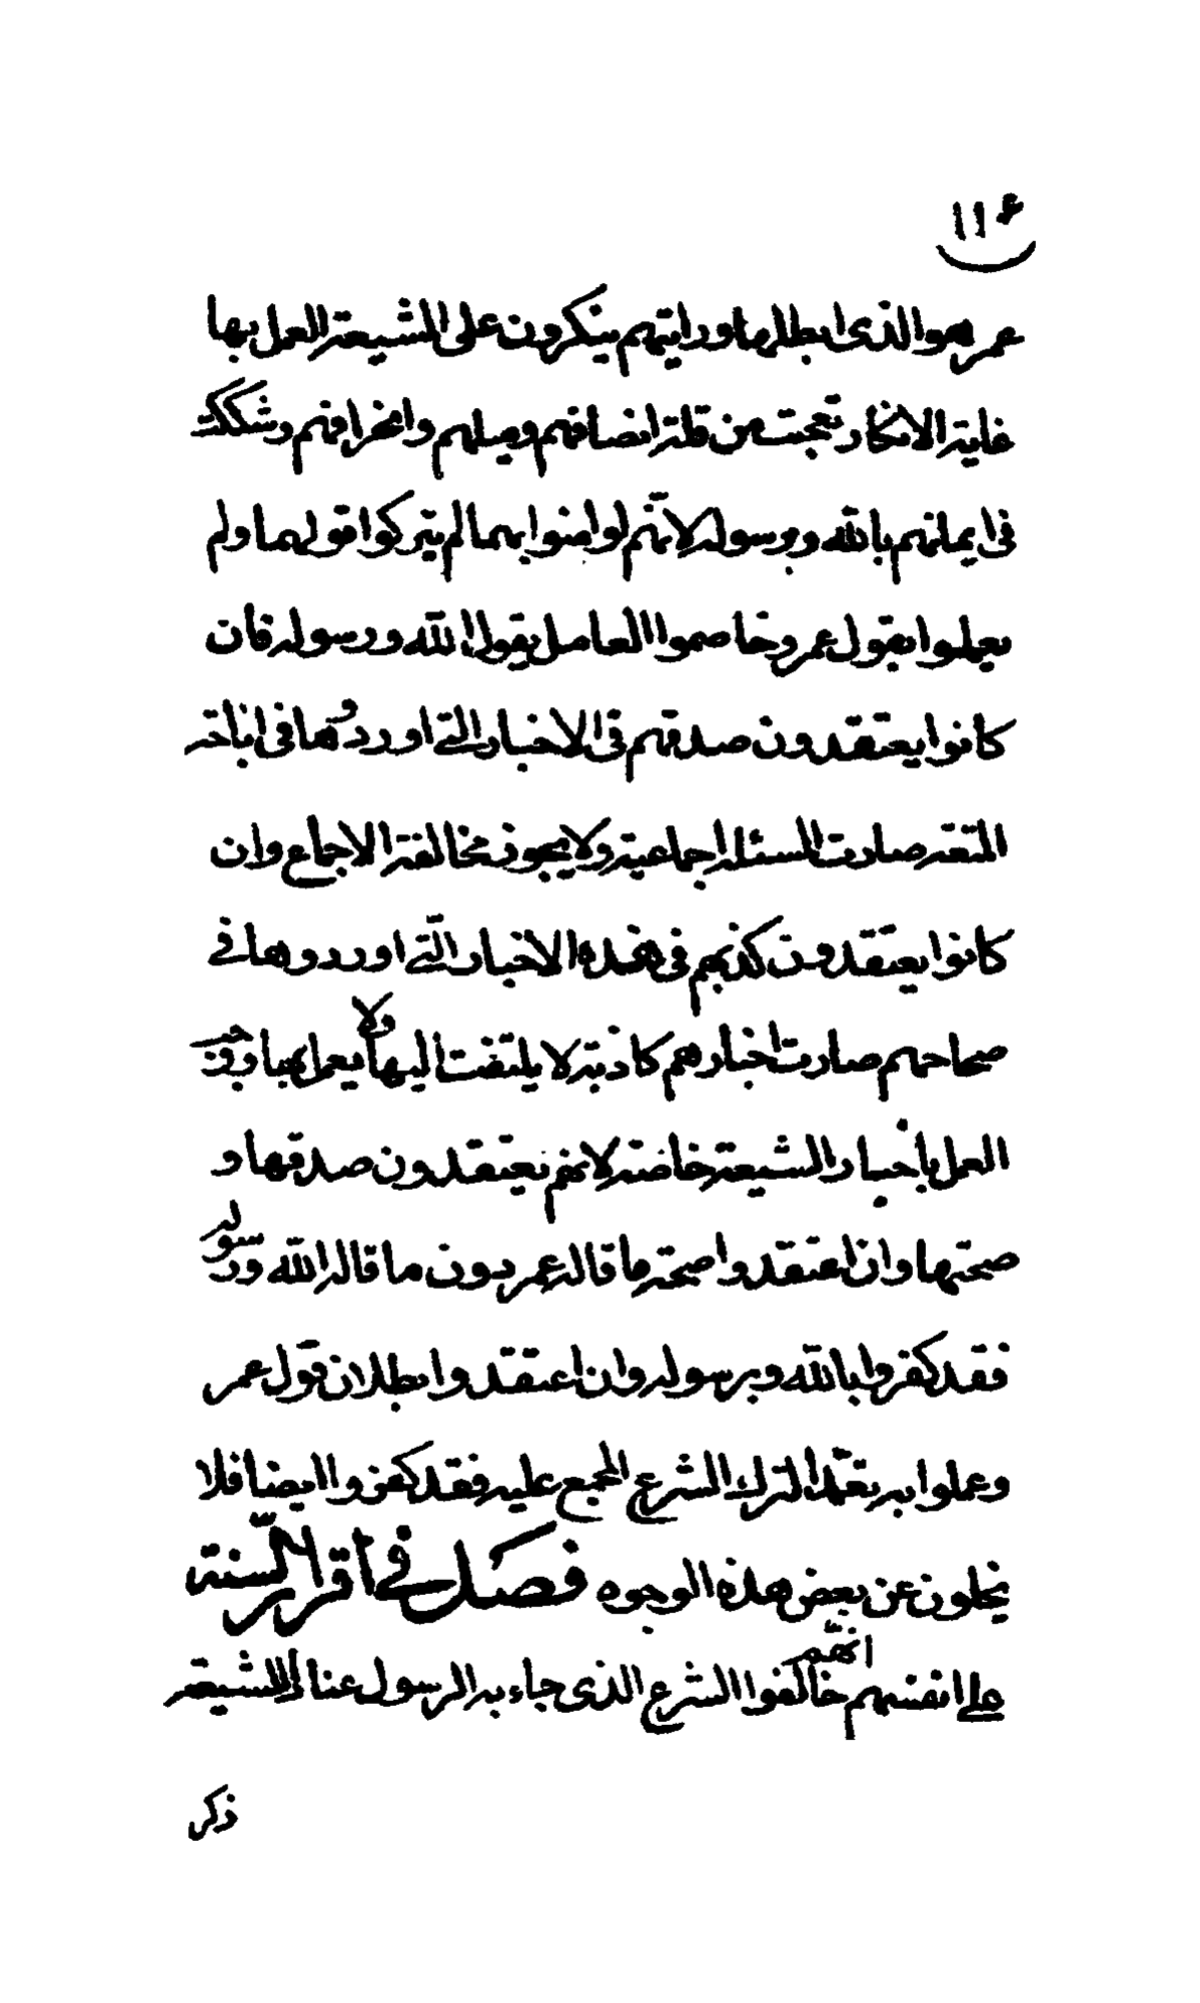 ۱۱۶
عمر هو الذى ابطلها ورايتهم ينكرون على الشيعة العمل بها
غاية الانكار تعجبت من قلة انصافهم وميلهم وانحرافهم وشككت
فى ايمانهم بالله وبرسوله لانّهم لو امنوا بهما لم يتركوا قولهما ولم
يعملوا بقول عمر وخاصموا العامل بقول الله ورسوله فان
كانوا يعتقدون صدقهم فى الاخبار التى اوردوها فى اباحة
المتعة صارت المسئله اجماعية ولا يجوز مخالفة الاجماع وان
كانوا يعتقدون كذبهم فى هذه الاخبار الّتى اوردوها فى
صحاحهم صارت اخبارهم كاذبة لا يلتفت اليها ولا يعمل بها
العمل باخبار الشيعة خاصة لانهم يعتقدون صدقها و
صحتها وان اعتقدوا صحة ما قاله عمر دون ما قاله الله ورسوله
فقد كفروا بالله وبرسوله وان اعتقدوا بطلان قول عمر
وعملوا به تعمّدا لترك الشرع المجمع عليه فقد كفروا ايضا فلا
يخلون عن بعض هذه الوجوه فصل فى اقرار السّنة
على انفسهم انّهم خالفوا الشرع الذى جاء به الرسول عنادا للشيعة
ذكر